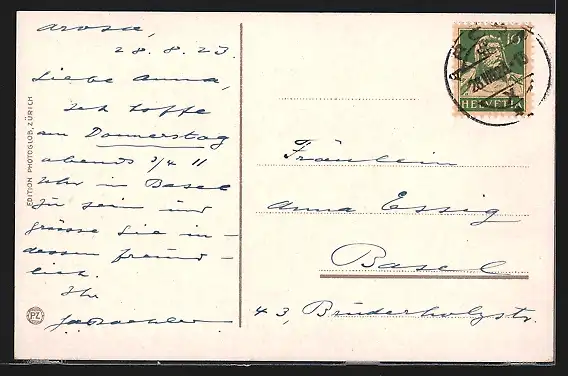 Arosa,
28. 8. 23.
Liebe Anna,
Ich hoffe
am Donnerstag
abends 3/4 11
Uhr in Basel
zu sein und
grüsse Sie in-
dessen freund-
lich.
Ihr
Fräulein
Anna Essig
Basel
43, Brüderholzstr.
EDITION PHOTOGLOB, ZÜRICH
PZ
10
HELVETIA